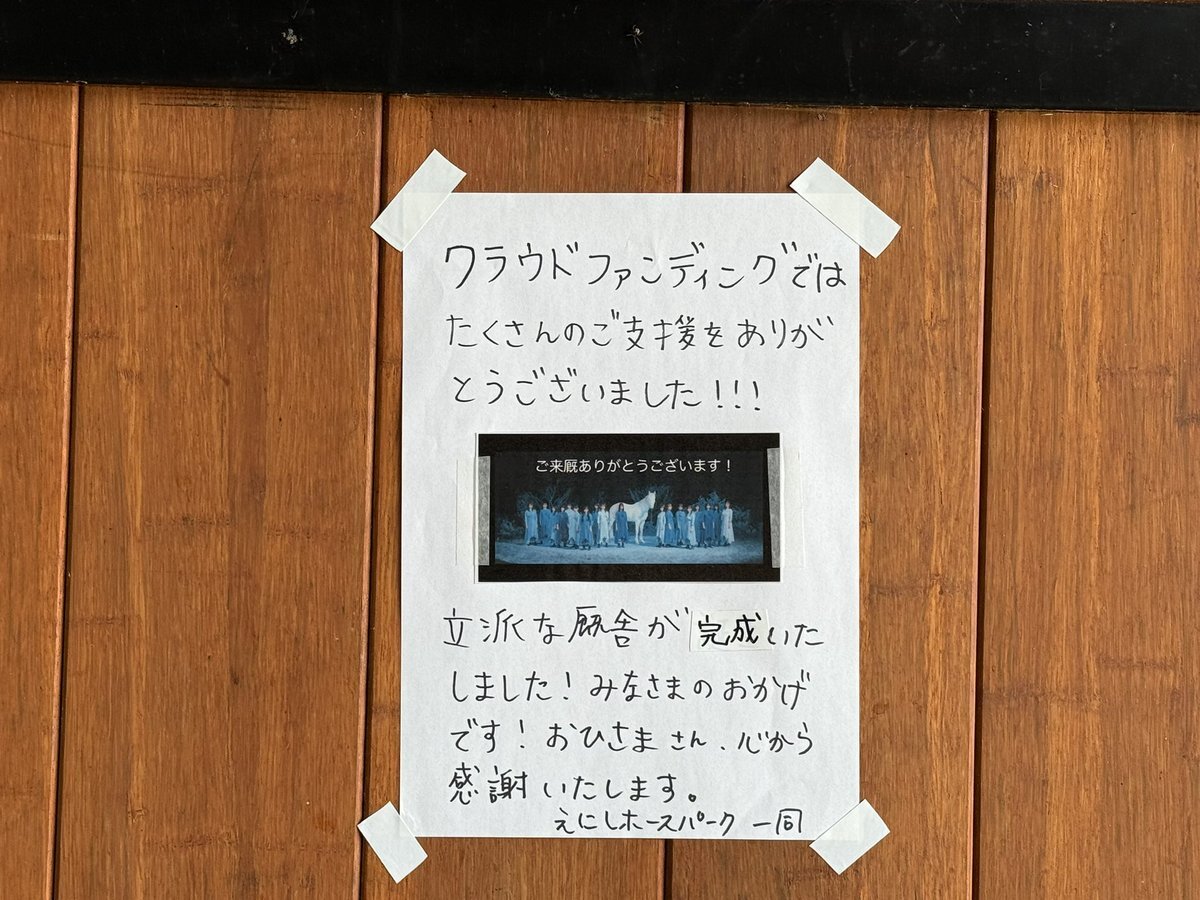 クラウドファンディングでは
たくさんのご支援をありが
とうございました!!!
ご来厩ありがとうございます!
立派な厩舎が完成いた
しました!みなさまのおかげ
です!おひさまさん、心から
感謝いたします。
えにしホースパーク一同